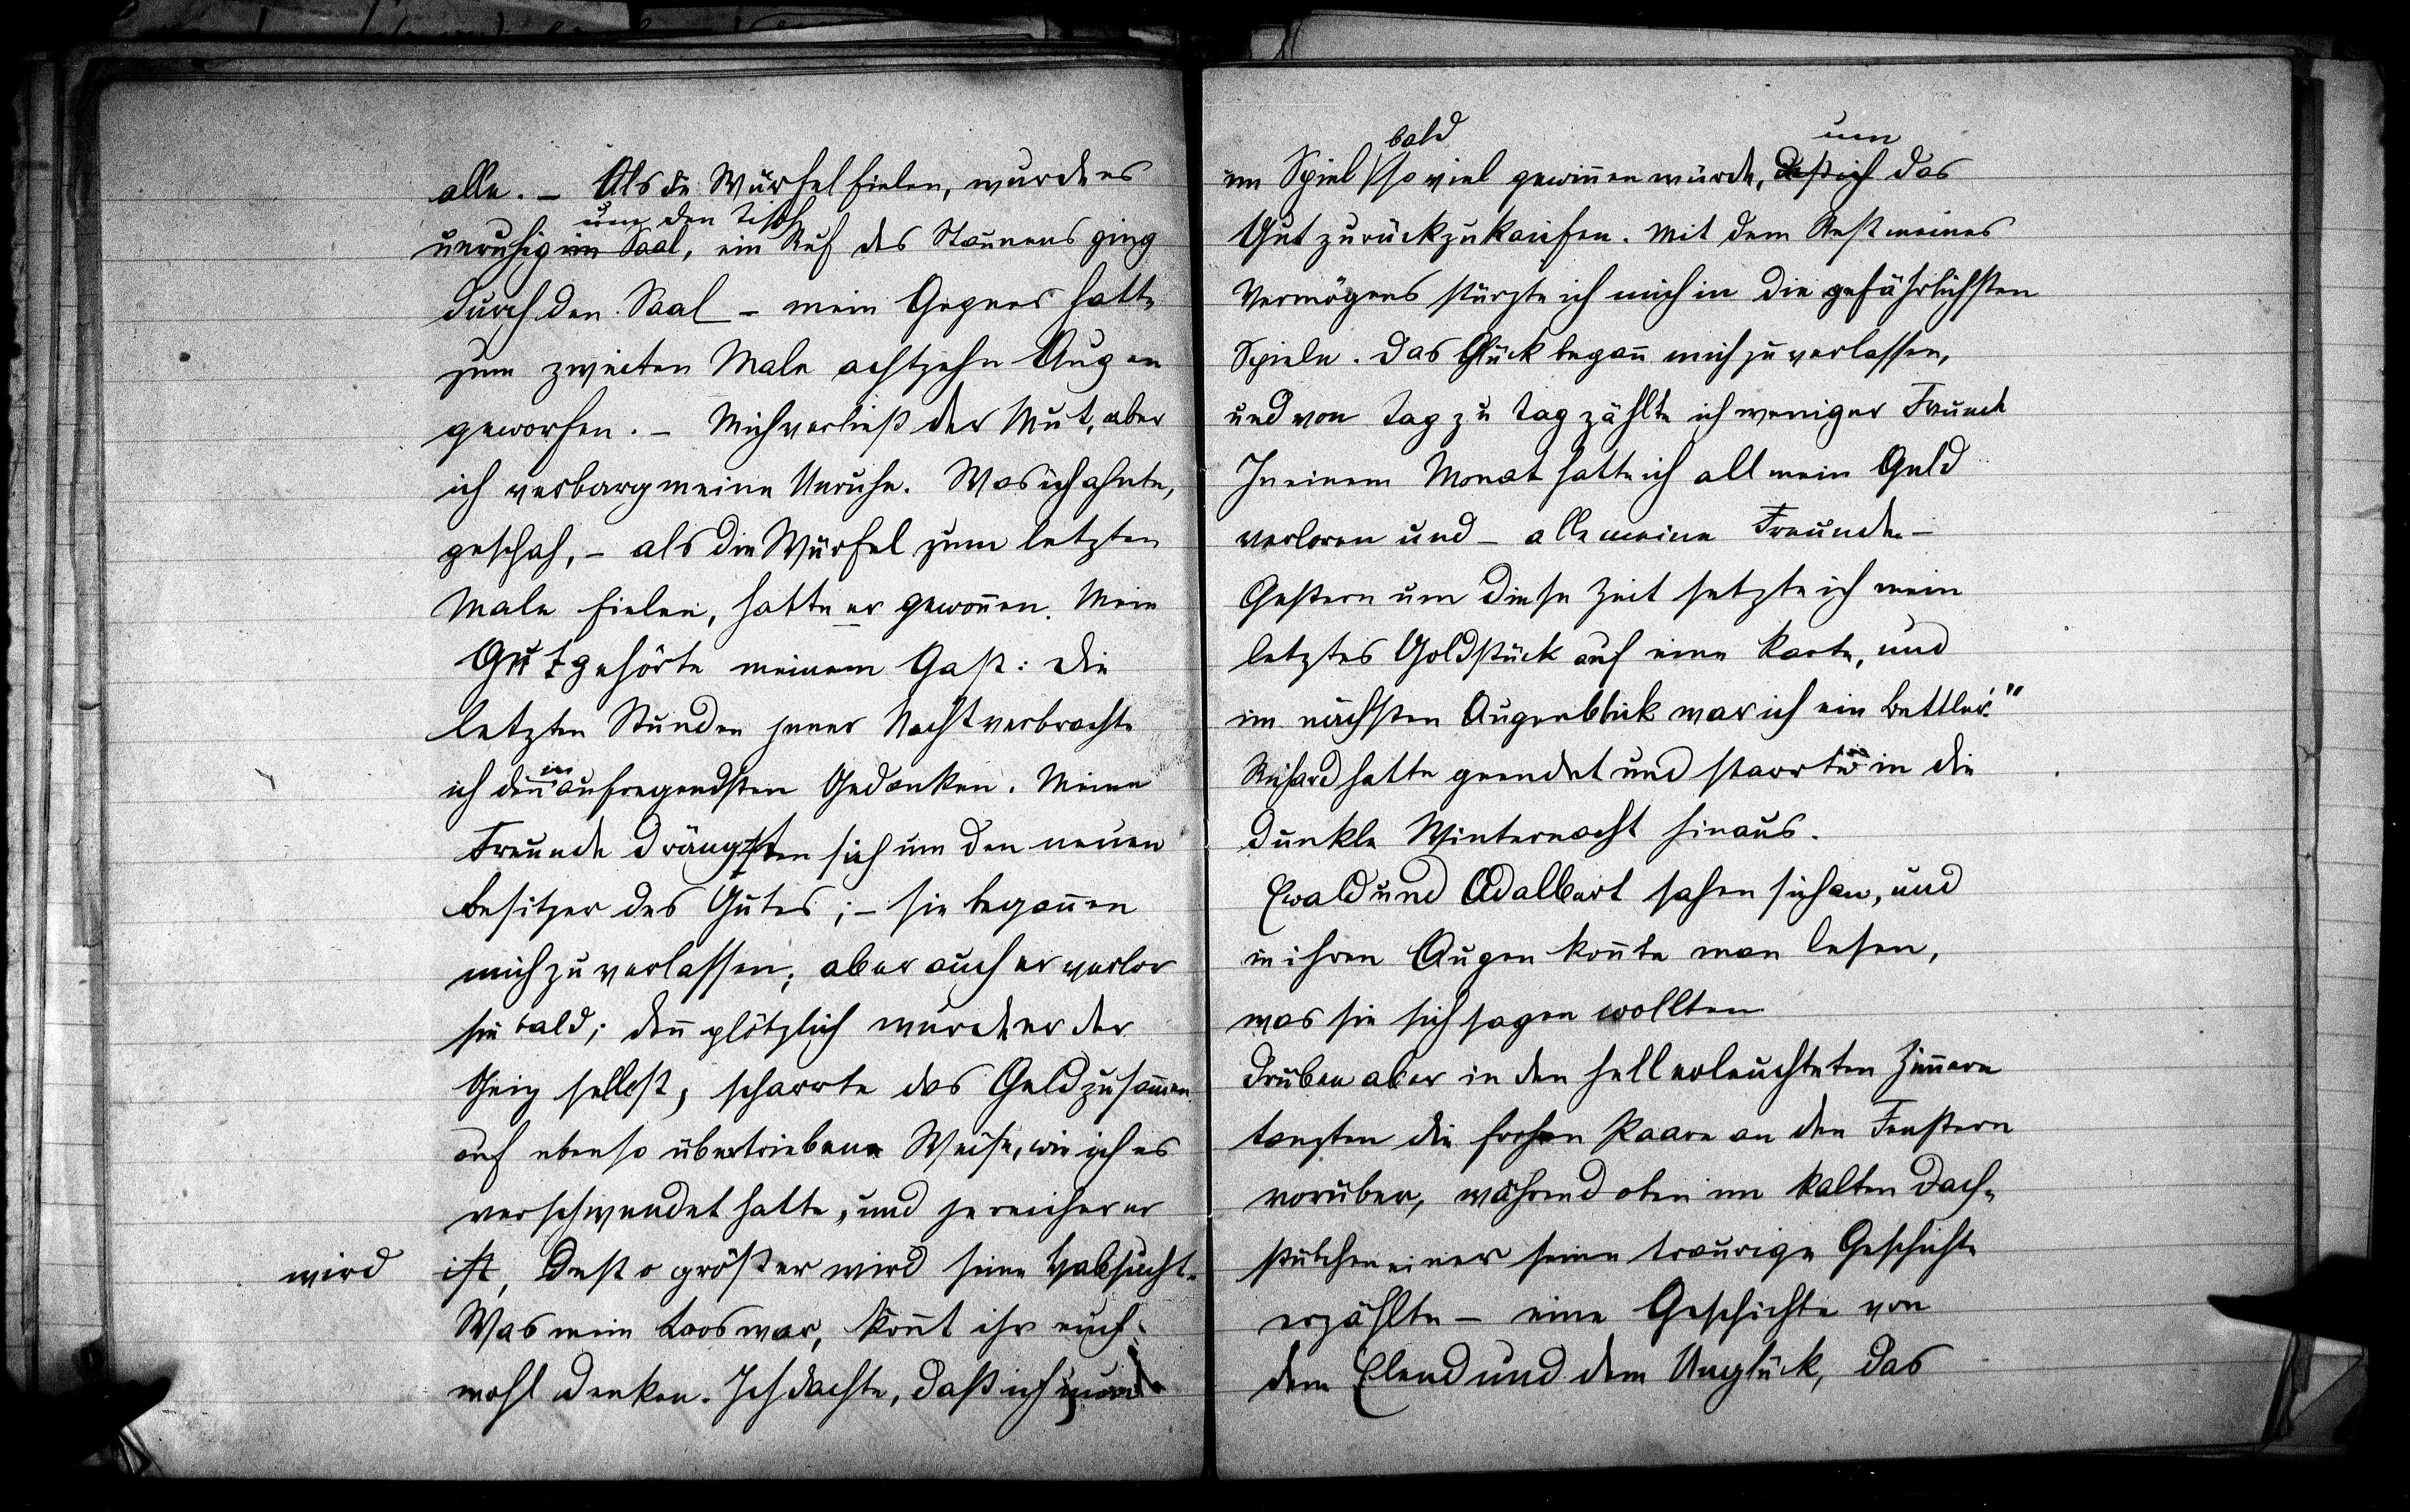 alle. – Als die Würfel fielen, wurde es
um den Tisch
unruhig im Saal, ein Ruf des Staunens ging
durch den Saal – mein Gegner hatte
zum zweiten Male achtzehn Augen
geworfen. – Mich verließ der Mut, aber
ich verbarg meine Unruhe. Was ich ahnte,
geschah, – als die Würfel zum letzten
Male fielen, hatte er gewonnen. Mein
Gut gehörte meinem Gast: Die
letzten Stunden jener Nacht verbrachte
in
ich den aufregendsten Gedanken. Meine
Freunde drängten sich um den neuen
Besitzer des Gutes; – sie begannen
mich zu verlassen; aber auch er verlor
sie bald; denn plötzlich wurde er der
Geiz selbst, scharrte das Geld zusammen
auf ebenso übertriebene Weise, wie ich es
verschwendet hatte, und je reicher er
wird ist, desto größer wird seine Habsucht.
Was mein Loos war, könnt ihr euch
wohl denken. Ich dachte, daß ich
bald um
im Spiel so viel gewinnen würde, daß ich das
Gut zurückzukaufen. Mit dem Rest meines
Vermögens stürzte ich mich in die gefährlichsten
Spiele. Das Glück begann mich zu verlassen,
und von Tag zu Tag zählte ich weniger Freunde
In einem Monat hatte ich all mein Geld
verloren und – alle meine Freunde. –
Gestern um diese Zeit setzte ich mein
letztes Goldstück auf eine Karte, und
im nächsten Augenblick war ich ein Bettler."
Richard hatte geendet und starrte in die
dunkle Winternacht hinaus.
Ewald und Adalbert sahen sich an, und
in ihren Augen konnte man lesen,
was sie sich sagen wollten
Drüben aber in den hell erleuchteten Zimmern
tanzten die frohen Paare an den Fenstern
vorüber, während oben im kalten Dach-
stübchen einer seine traurige Geschichte
erzählte – eine Geschichte von
dem Elend und dem Unglück, das